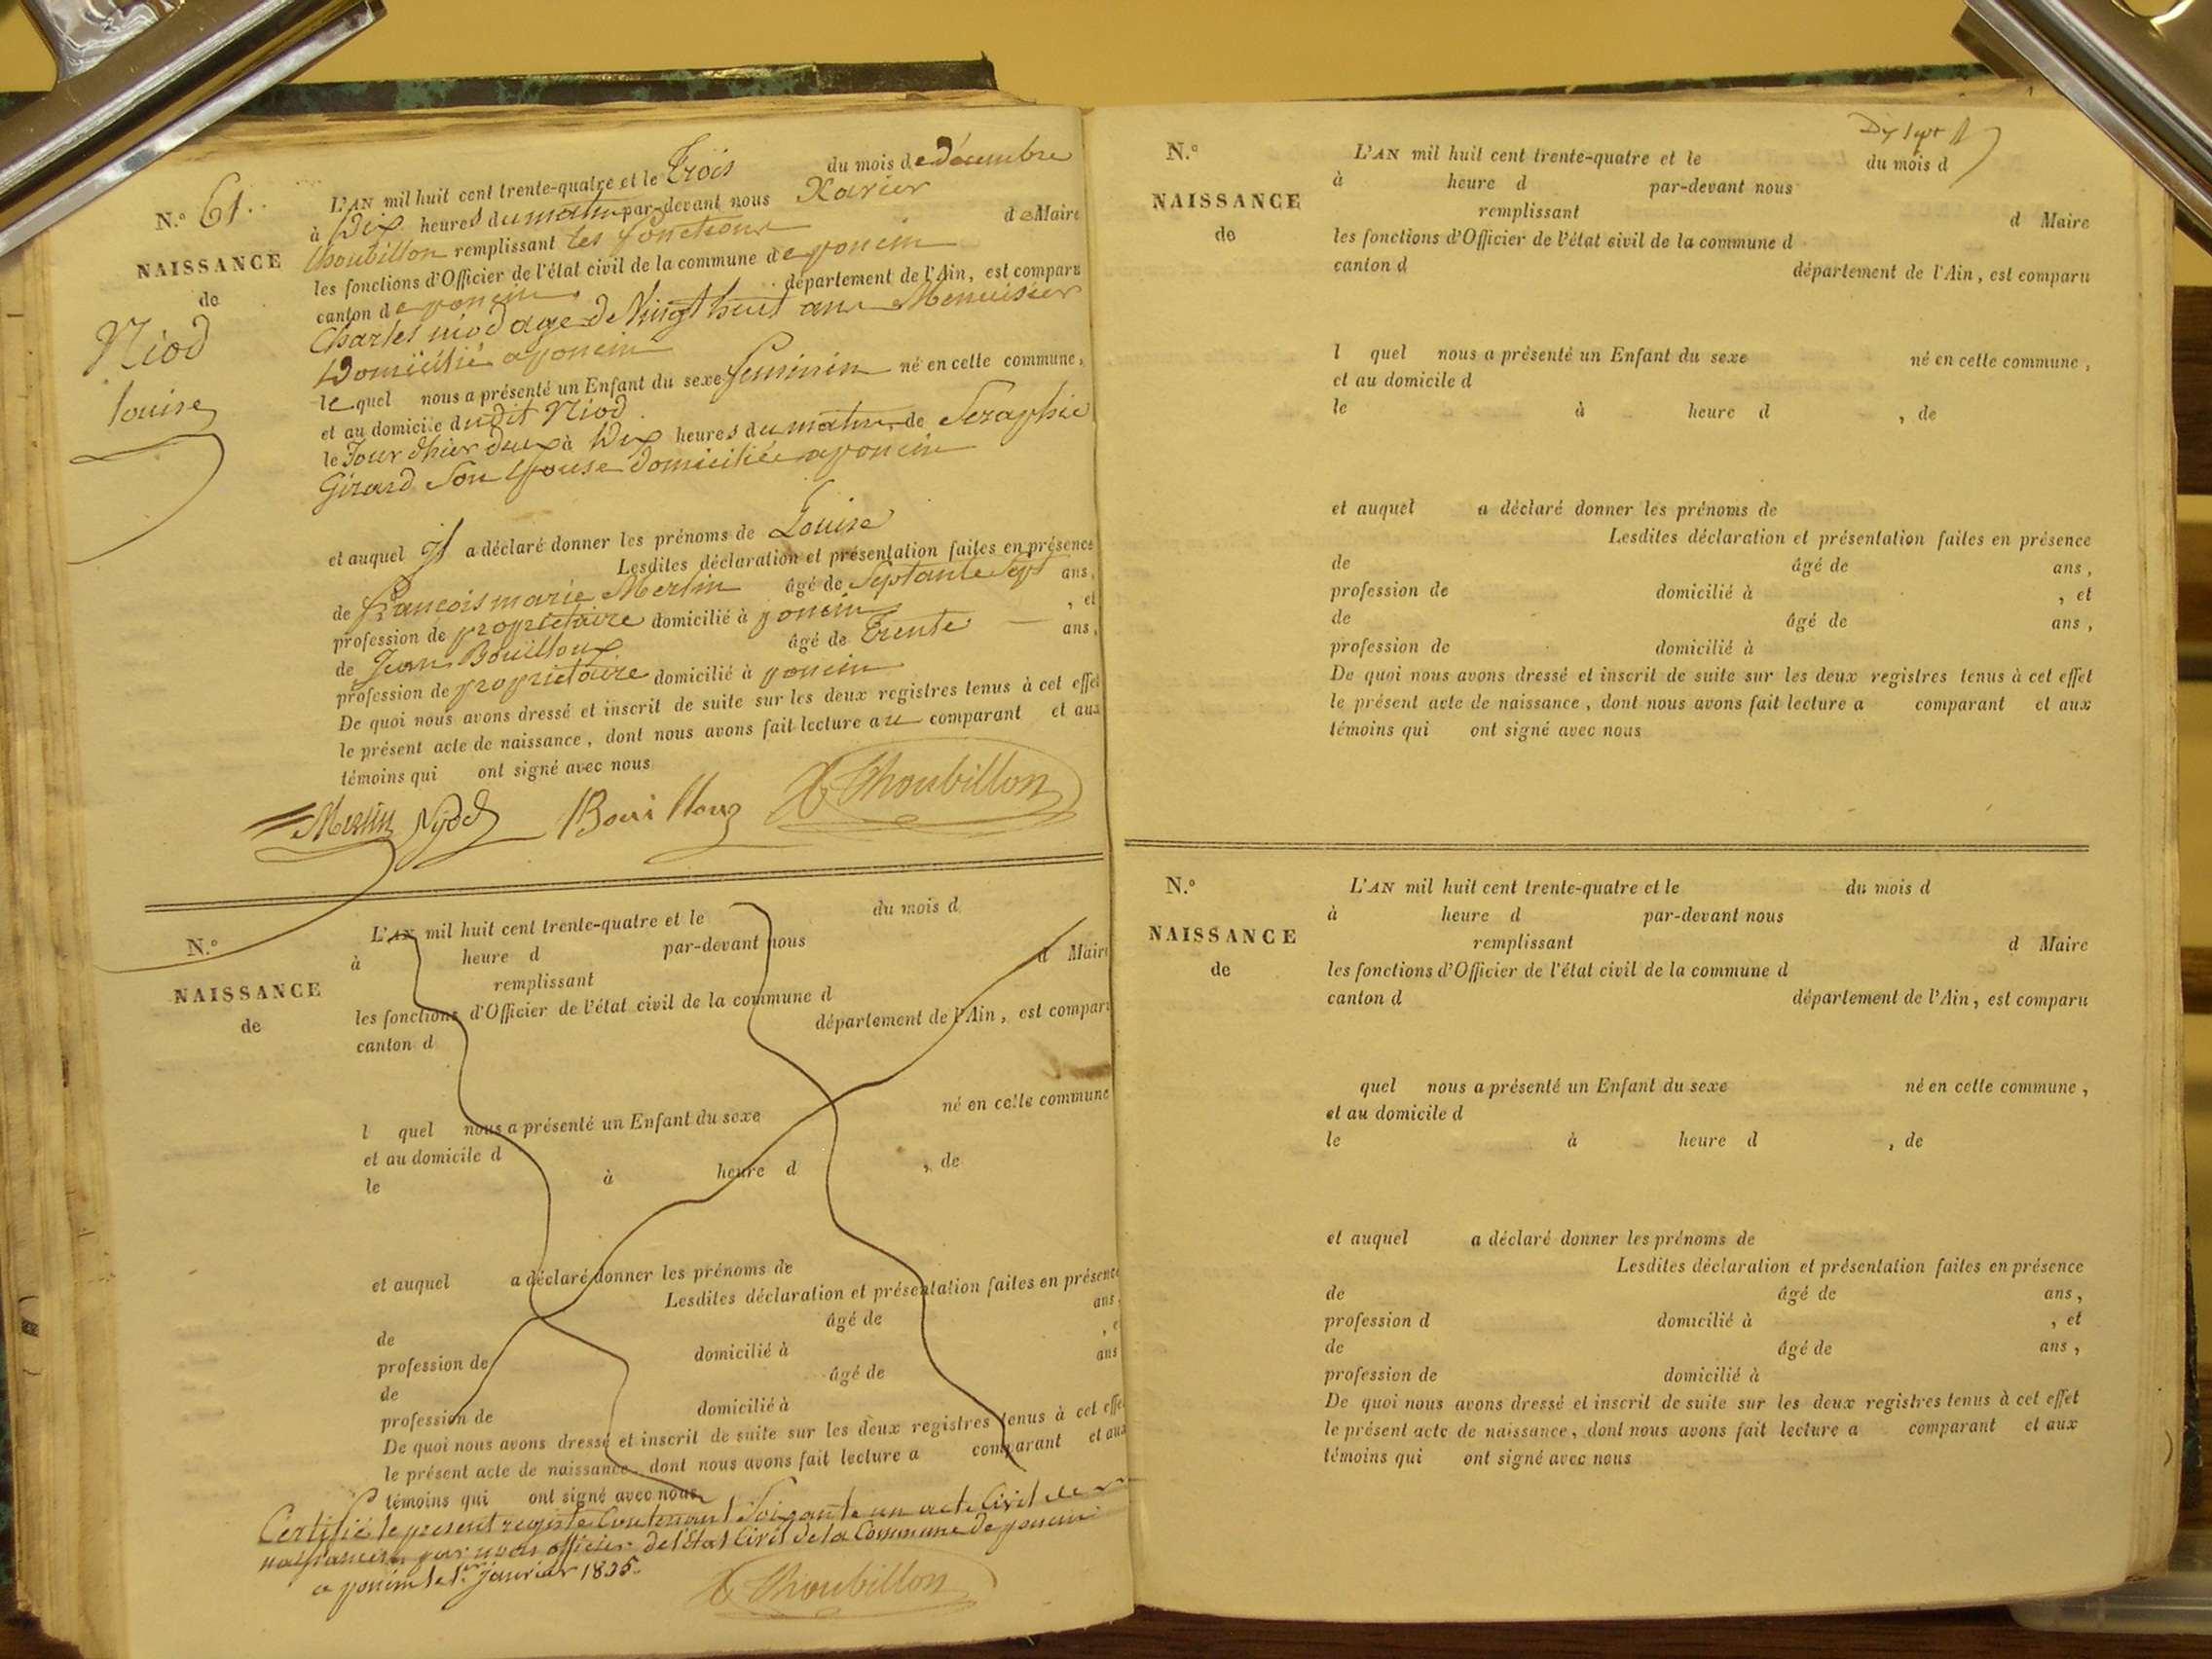 N.° 61.
NAISSANCE
de
Niod
louise
L'AN mil huit cent trente-quatre et le Trois du mois de Décembre
à Dix heures du matin par-devant nous Xavier
Thoubillon remplissant les fonctions de Maire
les fonctions d'Officier de l'état civil de la commune de poncin
canton de poncin département de l'Ain, est comparu
Charles niod age de Vingt huit ans Menuisier
Domicilié a poncin
le quel nous a présenté un Enfant du sexe feminin né en cette commune,
et au domicile du dit Niod
le Jour d'hier deux à Dix heures du matin, de Seraphie
Girard Son Epouse domiciliée a poncin
et auquel Il a déclaré donner les prénoms de Louise
Lesdites déclaration et présentation faites en présence
de francois marie Merlin âgé de Septante Sept ans,
profession de proprietaire domicilié à poncin, et
de Jean Bouilloux âgé de Trente ans,
profession de proprietaire domicilié à poncin
De quoi nous avons dressé et inscrit de suite sur les deux registres tenus à cet effet
le présent acte de naissance, dont nous avons fait lecture au comparant et aux
témoins qui ont signé avec nous
Merlin Nyod Bouilloux X Thoubillon
N.°
NAISSANCE
de
L'AN mil huit cent trente-quatre et le du mois d
à heure d par-devant nous
remplissant d Maire
les fonctions d'Officier de l'état civil de la commune d
canton d département de l'Ain, est comparu
l quel nous a présenté un Enfant du sexe né en cette commune
et au domicile d
le à heure d , de
et auquel a déclaré donner les prénoms de
Lesdites déclaration et présentation faites en présence
de âgé de ans,
profession de domicilié à , et
de âgé de ans
profession de domicilié à
De quoi nous avons dressé et inscrit de suite sur les deux registres tenus à cet effet
le présent acte de naissance, dont nous avons fait lecture a comparant et aux
témoins qui ont signé avec nous
Certifié le present registre Contenant Soixante un acte Civil de
naissances par nous officier de l'Etat Civil de la Commune de poncin
a poncin le 1er Janvier 1835.
X Thoubillon
N.°
NAISSANCE
de
L'AN mil huit cent trente-quatre et le du mois d
à heure d par-devant nous
remplissant d Maire
les fonctions d'Officier de l'état civil de la commune d
canton d département de l'Ain, est comparu
l quel nous a présenté un Enfant du sexe né en cette commune,
et au domicile d
le à heure d , de
et auquel a déclaré donner les prénoms de
Lesdites déclaration et présentation faites en présence
de âgé de ans,
profession de domicilié à , et
de âgé de ans,
profession de domicilié à
De quoi nous avons dressé et inscrit de suite sur les deux registres tenus à cet effet
le présent acte de naissance, dont nous avons fait lecture a comparant et aux
témoins qui ont signé avec nous
N.°
NAISSANCE
de
L'AN mil huit cent trente-quatre et le du mois d
à heure d par-devant nous
remplissant d Maire
les fonctions d'Officier de l'état civil de la commune d
canton d département de l'Ain, est comparu
quel nous a présenté un Enfant du sexe né en cette commune,
et au domicile d
le à heure d , de
et auquel a déclaré donner les prénoms de
Lesdites déclaration et présentation faites en présence
de âgé de ans,
profession d domicilié à , et
de âgé de ans,
profession de domicilié à
De quoi nous avons dressé et inscrit de suite sur les deux registres tenus à cet effet
le présent acte de naissance, dont nous avons fait lecture a comparant et aux
témoins qui ont signé avec nous